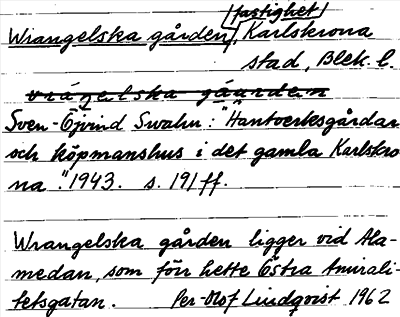 /fastighet/
Wrangelska gården, Karlskrona
stad, Blek. l.
vráŋelska gáarden
Sven-Öjvind Swahn: "Hantverksgårdar
och köpmanshus i det gamla Karlskro
na". 1943. s. 191 ff.
Wrangelska gården ligger vid Ala-
medan, som förr hette Östra Amirali-
tetsgatan. Per-Olof Lindqvist 1962